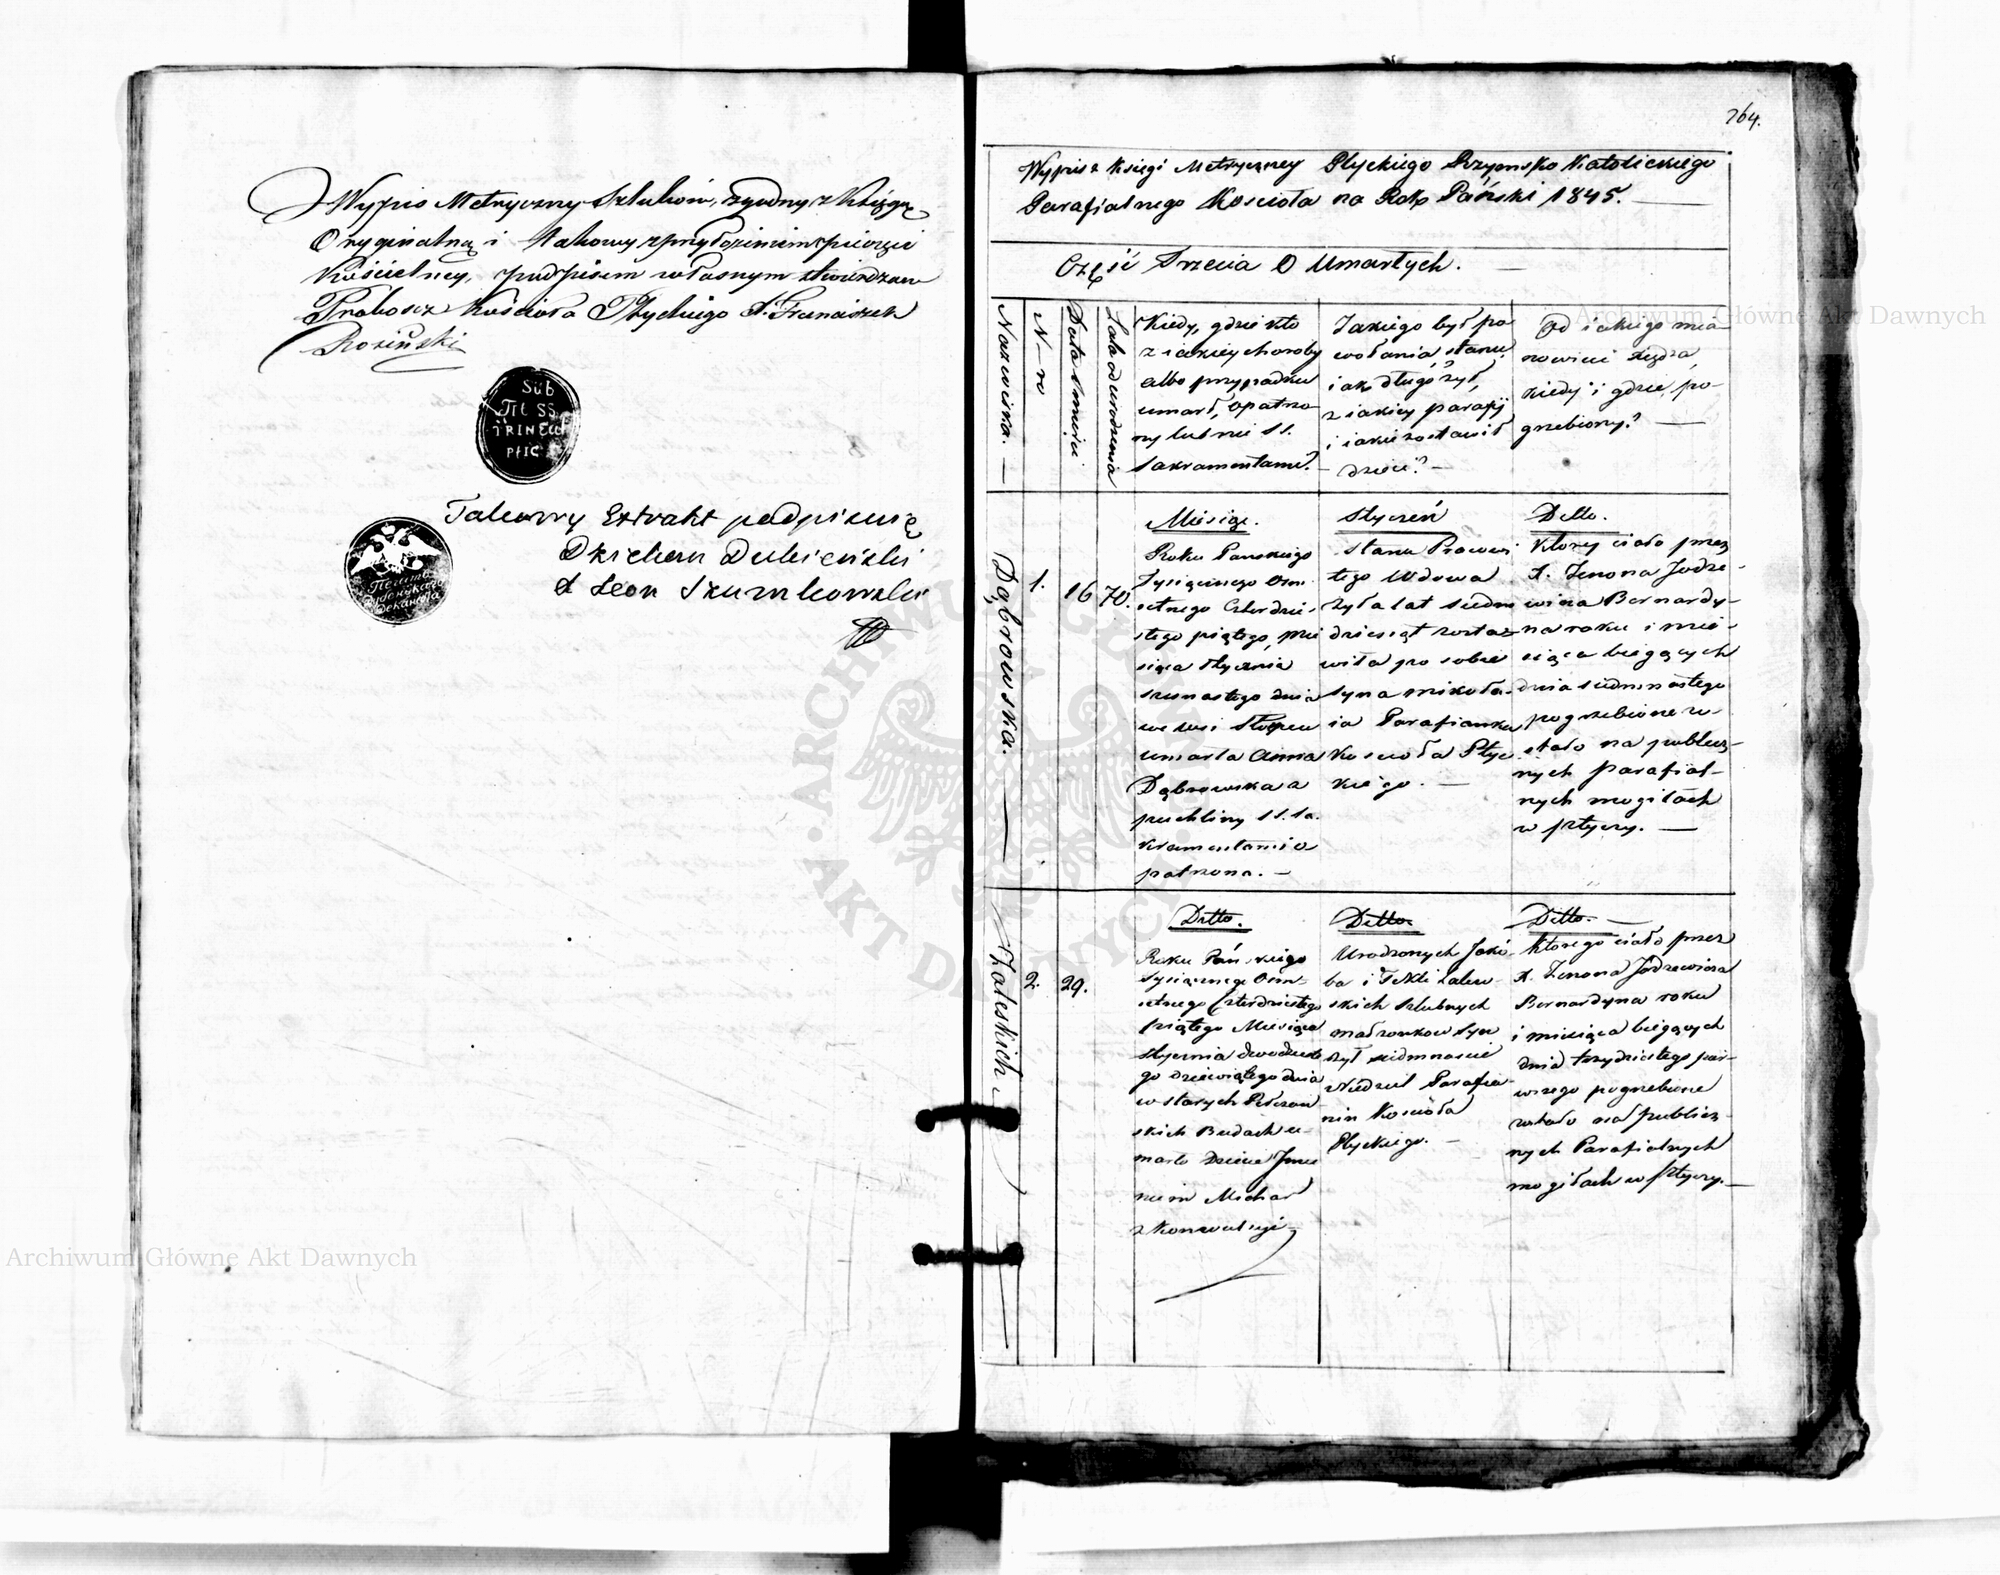 Wypis Metryczny Szlubów, zgodny z Księgą
Oryginalną i takowy z przyłożeniem pieczęci
Kościelney, podpisem własnym stwierdzam
Proboszcz Kościoła Ptyckiego X. Franciszek
Rosiński
Sub
Tit SS
TRINEUT
PTIC
Takowy Extrakt podpisuię
Dziekan Dubieński
X Leon Szumkowski
264.
Wypis z Księgi Metryczney Ptyckiego Rzymsko Katolickiego
Parafialnego Kościoła na Rok Pański 1845.
Część Trzecia O Umarłych.
Nazwiska.
N-ro
Data śmierci
Lata od urodzenia
Kiedy, gdzie kto
z iakiey choroby
albo przypadku
umarł, opatrzo-
ny lub nie SS.
Sakramentami?
Jakiego był po-
wołania, stanu,
iak długo żył,
z iakiey parafij
i iakie zostawił
dzieci?
Od iakiego mia-
nowicie Xiędza,
kiedy i gdzie po-
grzebiony?
Dąbrowska.
1.
16
70.
Miesiąc.
Roku Pańskiego
Tysiącznego Ośm-
setnego Czterdzie-
stego piątego, mie
siąca stycznia
szesnastego dnia
we wsi
umarła Anna
Dąbrowska z
puchliny SS. Sa-
kramentami o
patrzona.
Styczeń
stanu
tego Wdowa
żyła lat siedm
dziesiąt zosta-
wiła po sobie
syna Mikoła-
ia Parafianka
Kościoła Ptyc
kiego.
Ditto.
Ktorey ciało przez
X. Zenona Jodze-
wicza Bernardy-
na roku i mie-
siąca bieżących
dnia siedmnastego
pogrzebione zo-
stało na publicz-
nych parafial-
nych mogiłach
w Ptyczy.
Zaleskich
2.
29.
Ditto.
Roku Pańskiego
tysiącznego Ośm-
setnego Czterdziestego
piątego Miesiąca
stycznia dwudzieste
go dziewiątego dnia
w starych
skich Budach u-
marło Dziecie Imie
niem Michał
z Konwulsyi
Ditto.
Urodzonych Jakó-
ba i Tekli Zalew-
skich szlubnych
małżonkow syn
żył siedmnaście
Niedziel Parafia-
nin Kościoła
Ptyckiego.
Ditto.
Ktorego ciało przez
X. Zenona Jodzewicza
Bernardyna roku
i miesiąca bieżących
dnia trzydziestego pier-
wszego pogrzebione
zostało na publicz-
nych Parafialnych
mogiłach w Ptyczy.
Archiwum Główne Akt Dawnych
Archiwum Główne Akt Dawnych
ARCHIWUM GŁÓWNE
AKT DAWNYCH